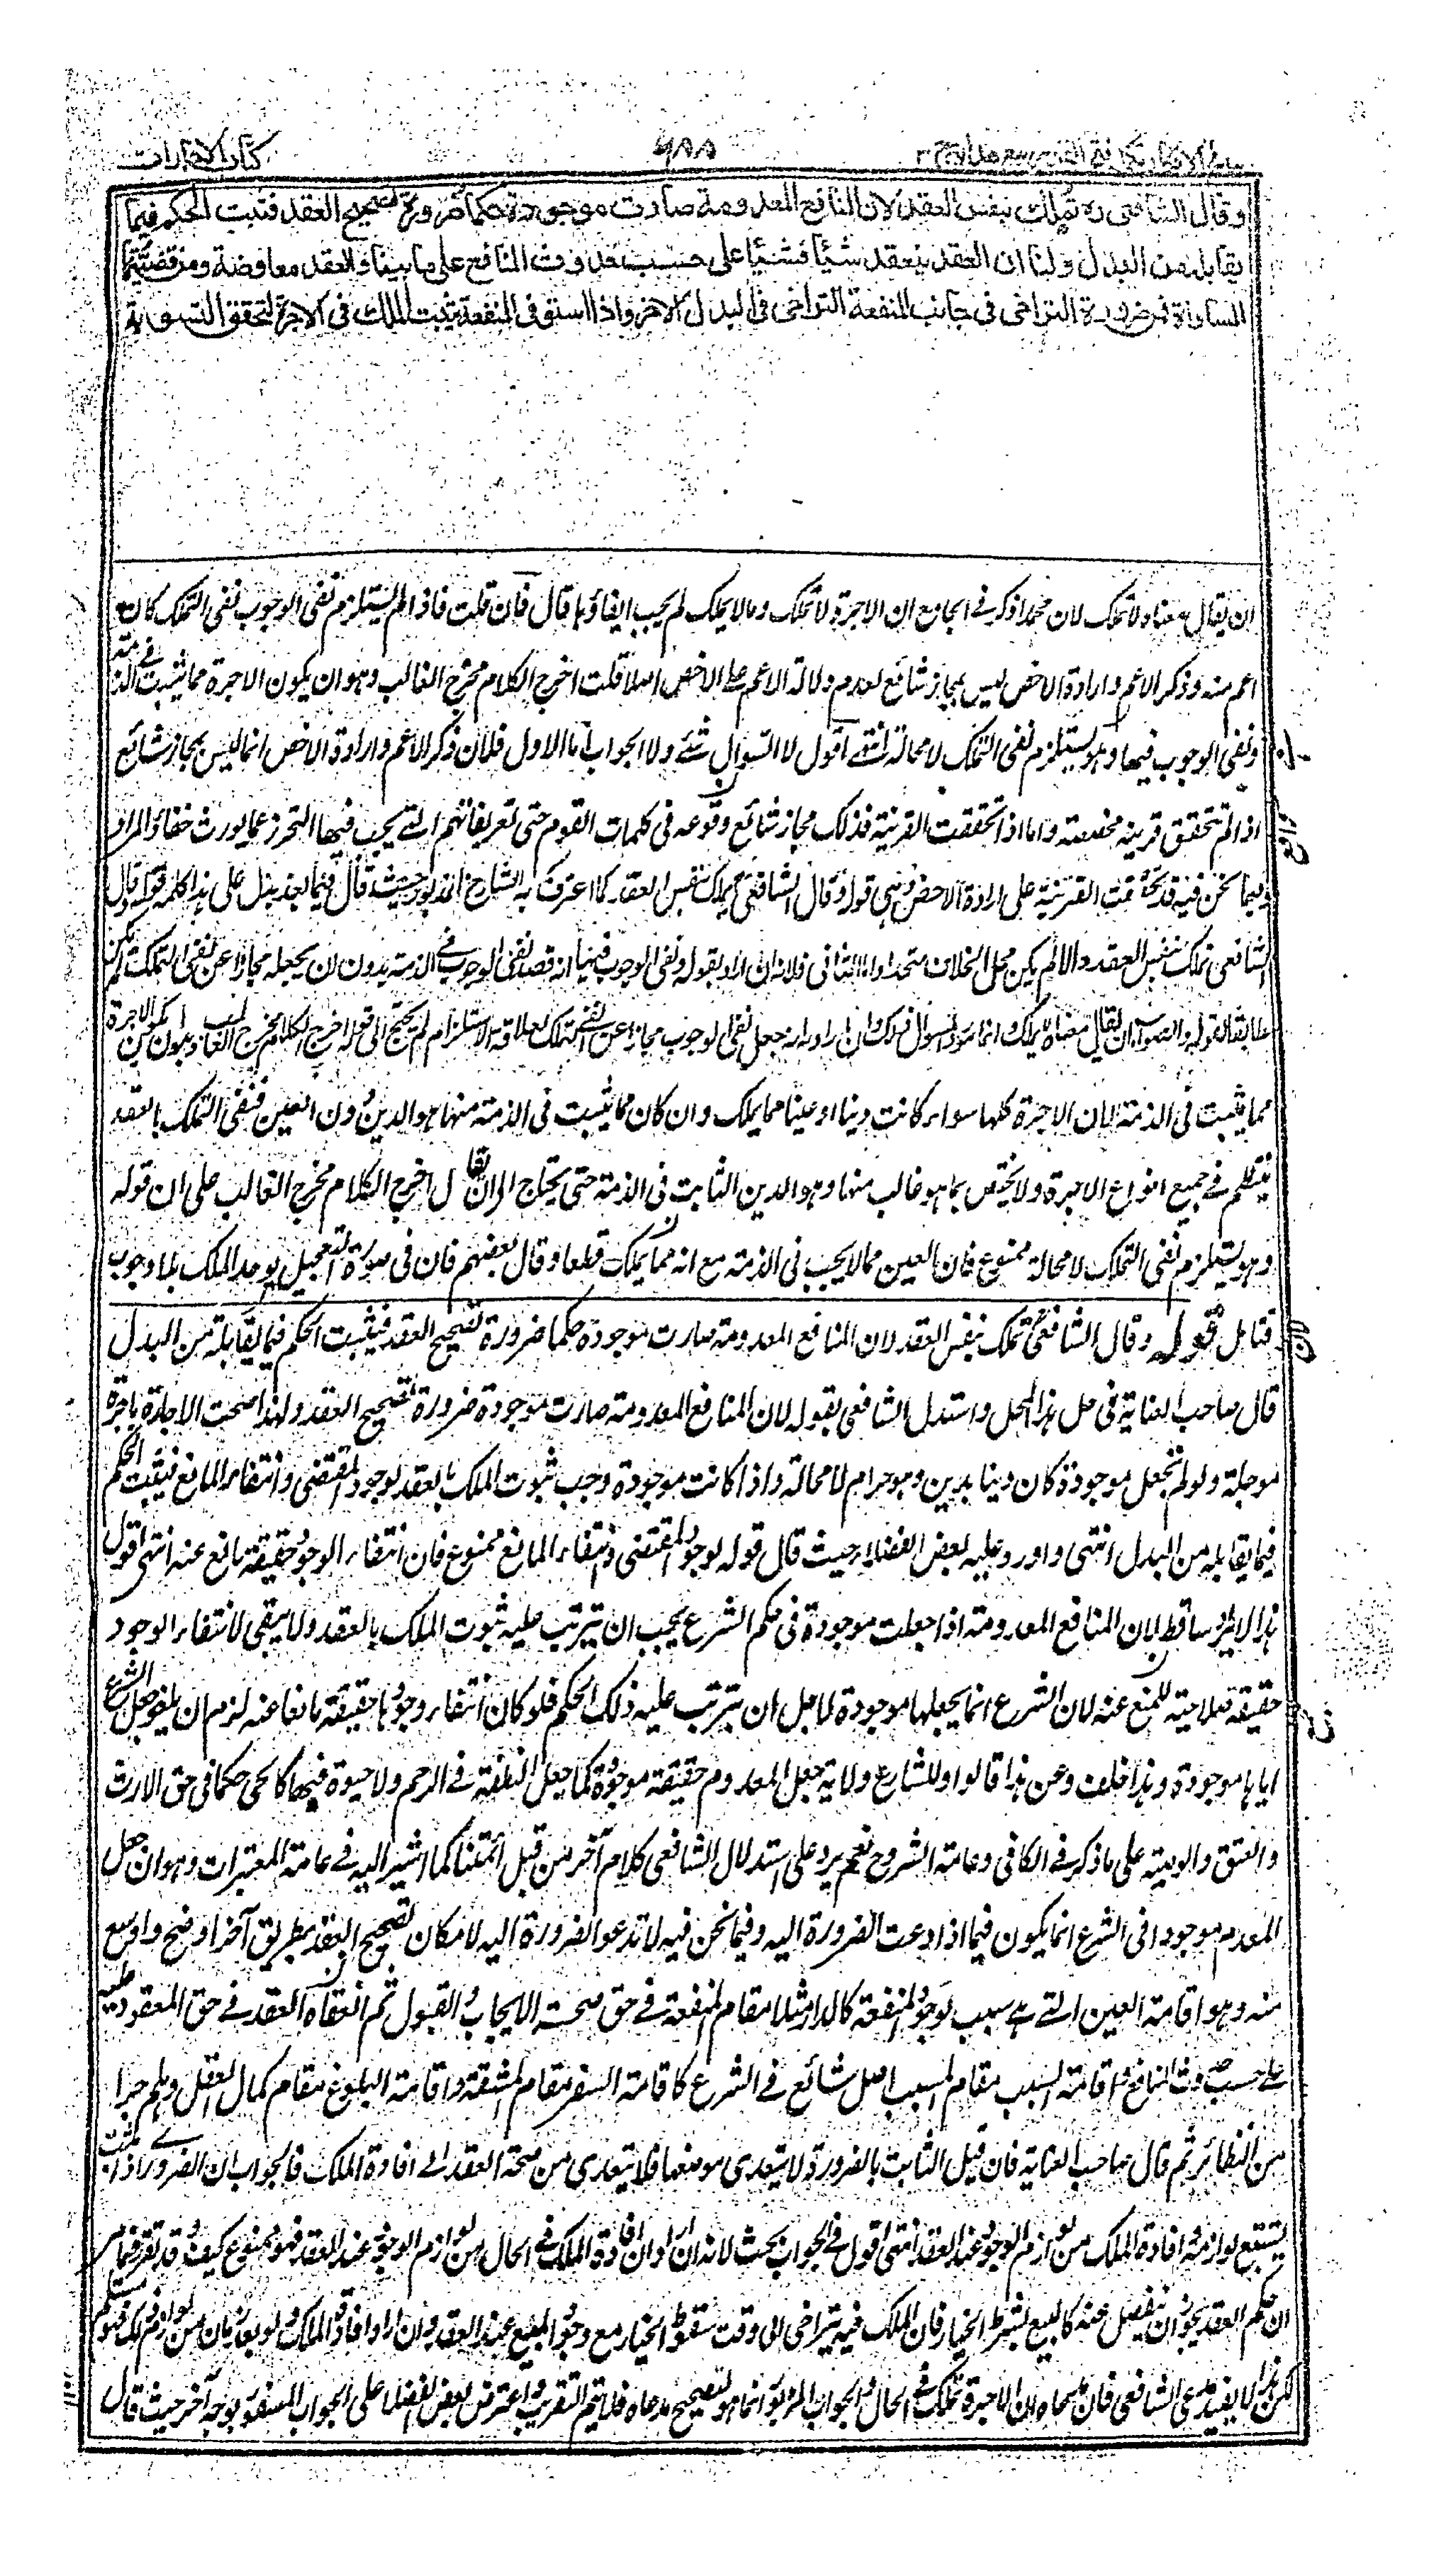 كتاب الاجارات
وقال الشافعى ره تملك بنفس العقد لان المنافع المعدومة صارت موجودة حكما ضرورة تصحيح العقد فثبت الحكم فيما
يقابله من البدل ولنا ان العقد ينعقد شيئا فشيئا على حسب حدوث المنافع على ما بينا والعقد معاوضة ومن قضيتها
المساواة فمن ضرورة التراخى فى جانب المنفعة التراخى فى البدل الاخر واذا استوفى المنفعة يثبت الملك فى الاجرة لتحقق التسوية
ان يقال معناه لا تملك لان محمدا ذكر فے الجامع ان الاجرة لا تملك وما لا يملك لم يجب ايفاؤها قال فان قلت فاذا لم يستلزم نفى الوجوب نفى التملك كان
اعم منه وذكر الاعم وارادة الاخص ليس بمجاز شائع لعدم دلالة الاعم علے الاخص اصلا قلت اخرج الكلام مخرج الغالب وهو ان يكون الاجرة مما يثبت فے الذمة
ونفى الوجوب فيها وهو يستلزم نفى التملك لا محالة انتهے اقول لا السوال بشئے ولا الجواب اما الاول فلان ذكر الاعم وارادة الاخص انما ليس بمجاز شائع
اذا لم تتحقق قرينة مخصصة واما اذا تحققت القرينة فذلك مجاز شائع وقوعه فى كلمات القوم حتى تعريفاتهم التے يجب فيها التحرز عما يورث خفاء المراد
وفيما نحن فيه قد تحققت القرينة على ارادة الاخص وهى قوله وقال الشافعى تملك بنفس العقد كما اعترف به الشارح المذبور حيث قال فيما بعد يدل على هذا كلمة قوله وقال
الشافعى تملك بنفس العقد والا لم يكن محل الخلاف متحدا واما الثانى فلانه ان اراد بقوله ونفى الوجوب فيها انه قصد نفى الوجوب فے الذمة بدون ان يجعله مجازا عن نفى التملك لم يكن
مطابقا لقوله والصواب ان يقال معناه لا يملك وانما مورد السوال ذلك وان اراد انه جعل نفى الوجوب مجازا عن نفى التملك بعلاقة الاستلزام لم يحتج الى قوله اخرج الكلام مخرج الغالب وهو ان يكون الاجرة
مما يثبت فى الذمة لان الاجرة كلها سواء كانت دينا او عينا مما يملك وان كان مما يثبت فى الذمة منها هو الدين دون العين فنفى التملك بالعقد
ينتظم فے جميع انواع الاجرة ولا يختص بما هو غالب منها وهو الدين الثابت فى الذمة حتى يحتاج الى ان يقال اخرج الكلام مخرج الغالب على ان قوله
وهو يستلزم نفى التملك لا محالة ممنوع فان العين مما لا يجب فى الذمة مع انه مما يملك قطعا وقال بعضهم فان فى صورة التعجيل يوجد الملك بلا وجوب
فتامل قوله وقال الشافعى تملك بنفس العقد لان المنافع المعدومة صارت موجودة حكما ضرورة تصحيح العقد فيثبت الحكم فيما يقابله من البدل
قال صاحب العناية فى حل هذا المحل واستدل الشافعى بقوله لان المنافع المعدومة صارت موجودة ضرورة تصحيح العقد ولهذا صحت الاجارة باجرة
موجلة ولو لم تجعل موجودة كان دينا بدين وهو حرام لا محالة واذا كانت موجودة وجب ثبوت الملك بالعقد لوجود المقتضى وانتفاء المانع فيثبت الحكم
فيما يقابله من البدل انتهى واورد عليه بعض الفضلاء حيث قال قوله لوجود المقتضى وانتفاء المانع ممنوع فان انتفاء الوجود حقيقة مانع عنه انتهى اقول
هذا الايراد ساقط لان المنافع المعدومة اذا جعلت موجودة فى حكم الشرع يجب ان يترتب عليه ثبوت الملك بالعقد ولا يبقى لانتفاء الوجود
حقيقة صلاحية للمنع عنه لان الشرع انما يجعلها موجودة لاجل ان يترتب عليه ذلك الحكم فلو كان انتفاء وجودها حقيقة مانعا عنه لزم ان يلغو جعل الشرع
اياها موجودة وهذا خلف وعن هذا قالوا وللشارع ولاية جعل المعدوم حقيقة موجودة كما جعل النطفة فے الرحم ولا حيوة فيها كالحى حكما فى حق الارث
والعتق والوصية على ما ذكر فے الكافى وعامة الشروح نعم يرد على استدلال الشافعى كلام آخر من قبل ائمتنا كما اشير اليه فے عامة المعتبرات وهو ان جعل
المعدوم موجودا فى الشرع انما يكون فيما اذا دعت الضرورة اليه وفيما نحن فيه لا تدعو الضرورة اليه لامكان تصحيح العقد بطريق آخر اوضح واوسع
منه وهو اقامة العين التے هے سبب لوجود المنفعة كالدار مثلا مقام المنفعة فے حق صحة الايجاب والقبول ثم انعقاد العقد فے حق المعقود عليه
علے حسب حدوث المنافع واقامة السبب مقام المسبب اصل شائع فے الشرع كاقامة السفر مقام المشقة واقامة البلوغ مقام كمال العقل وهلم جرا
من النظائر ثم قال صاحب العناية فان قيل الثابت بالضرورة لا يتعدى موضعها فلا يتعدى من صحة العقد الے افادة الملك فالجواب ان الضرورى اذا ثبت
يستتبع لوازمه وافادة الملك من لوازم الوجود عند العقد انتهى اقول فے الجواب بحث لانه ان اراد ان افادة الملك فے الحال من لوازم الوجود عند العقد فهو ممنوع كيف وقد تقرر فيما مر
ان حكم العقد يجوز ان ينفصل عنه كالبيع بشرط الخيار فان الملك فيه يتراخى الى وقت سقوط الخيار مع وجود المبيع عند العقد وان اراد افادة الملك ولو بعد زمان من لوازم ذلك فهو مسلم
لكن هذا لا يفيد مدعى الشافعى فان مدعاه ان الاجرة تملك فے الحال والجواب المزبور انما هو لتصحيح مدعاه فلا يتم التقريب واعترض بعض الفضلاء على الجواب المسفور بوجه آخر حيث قال